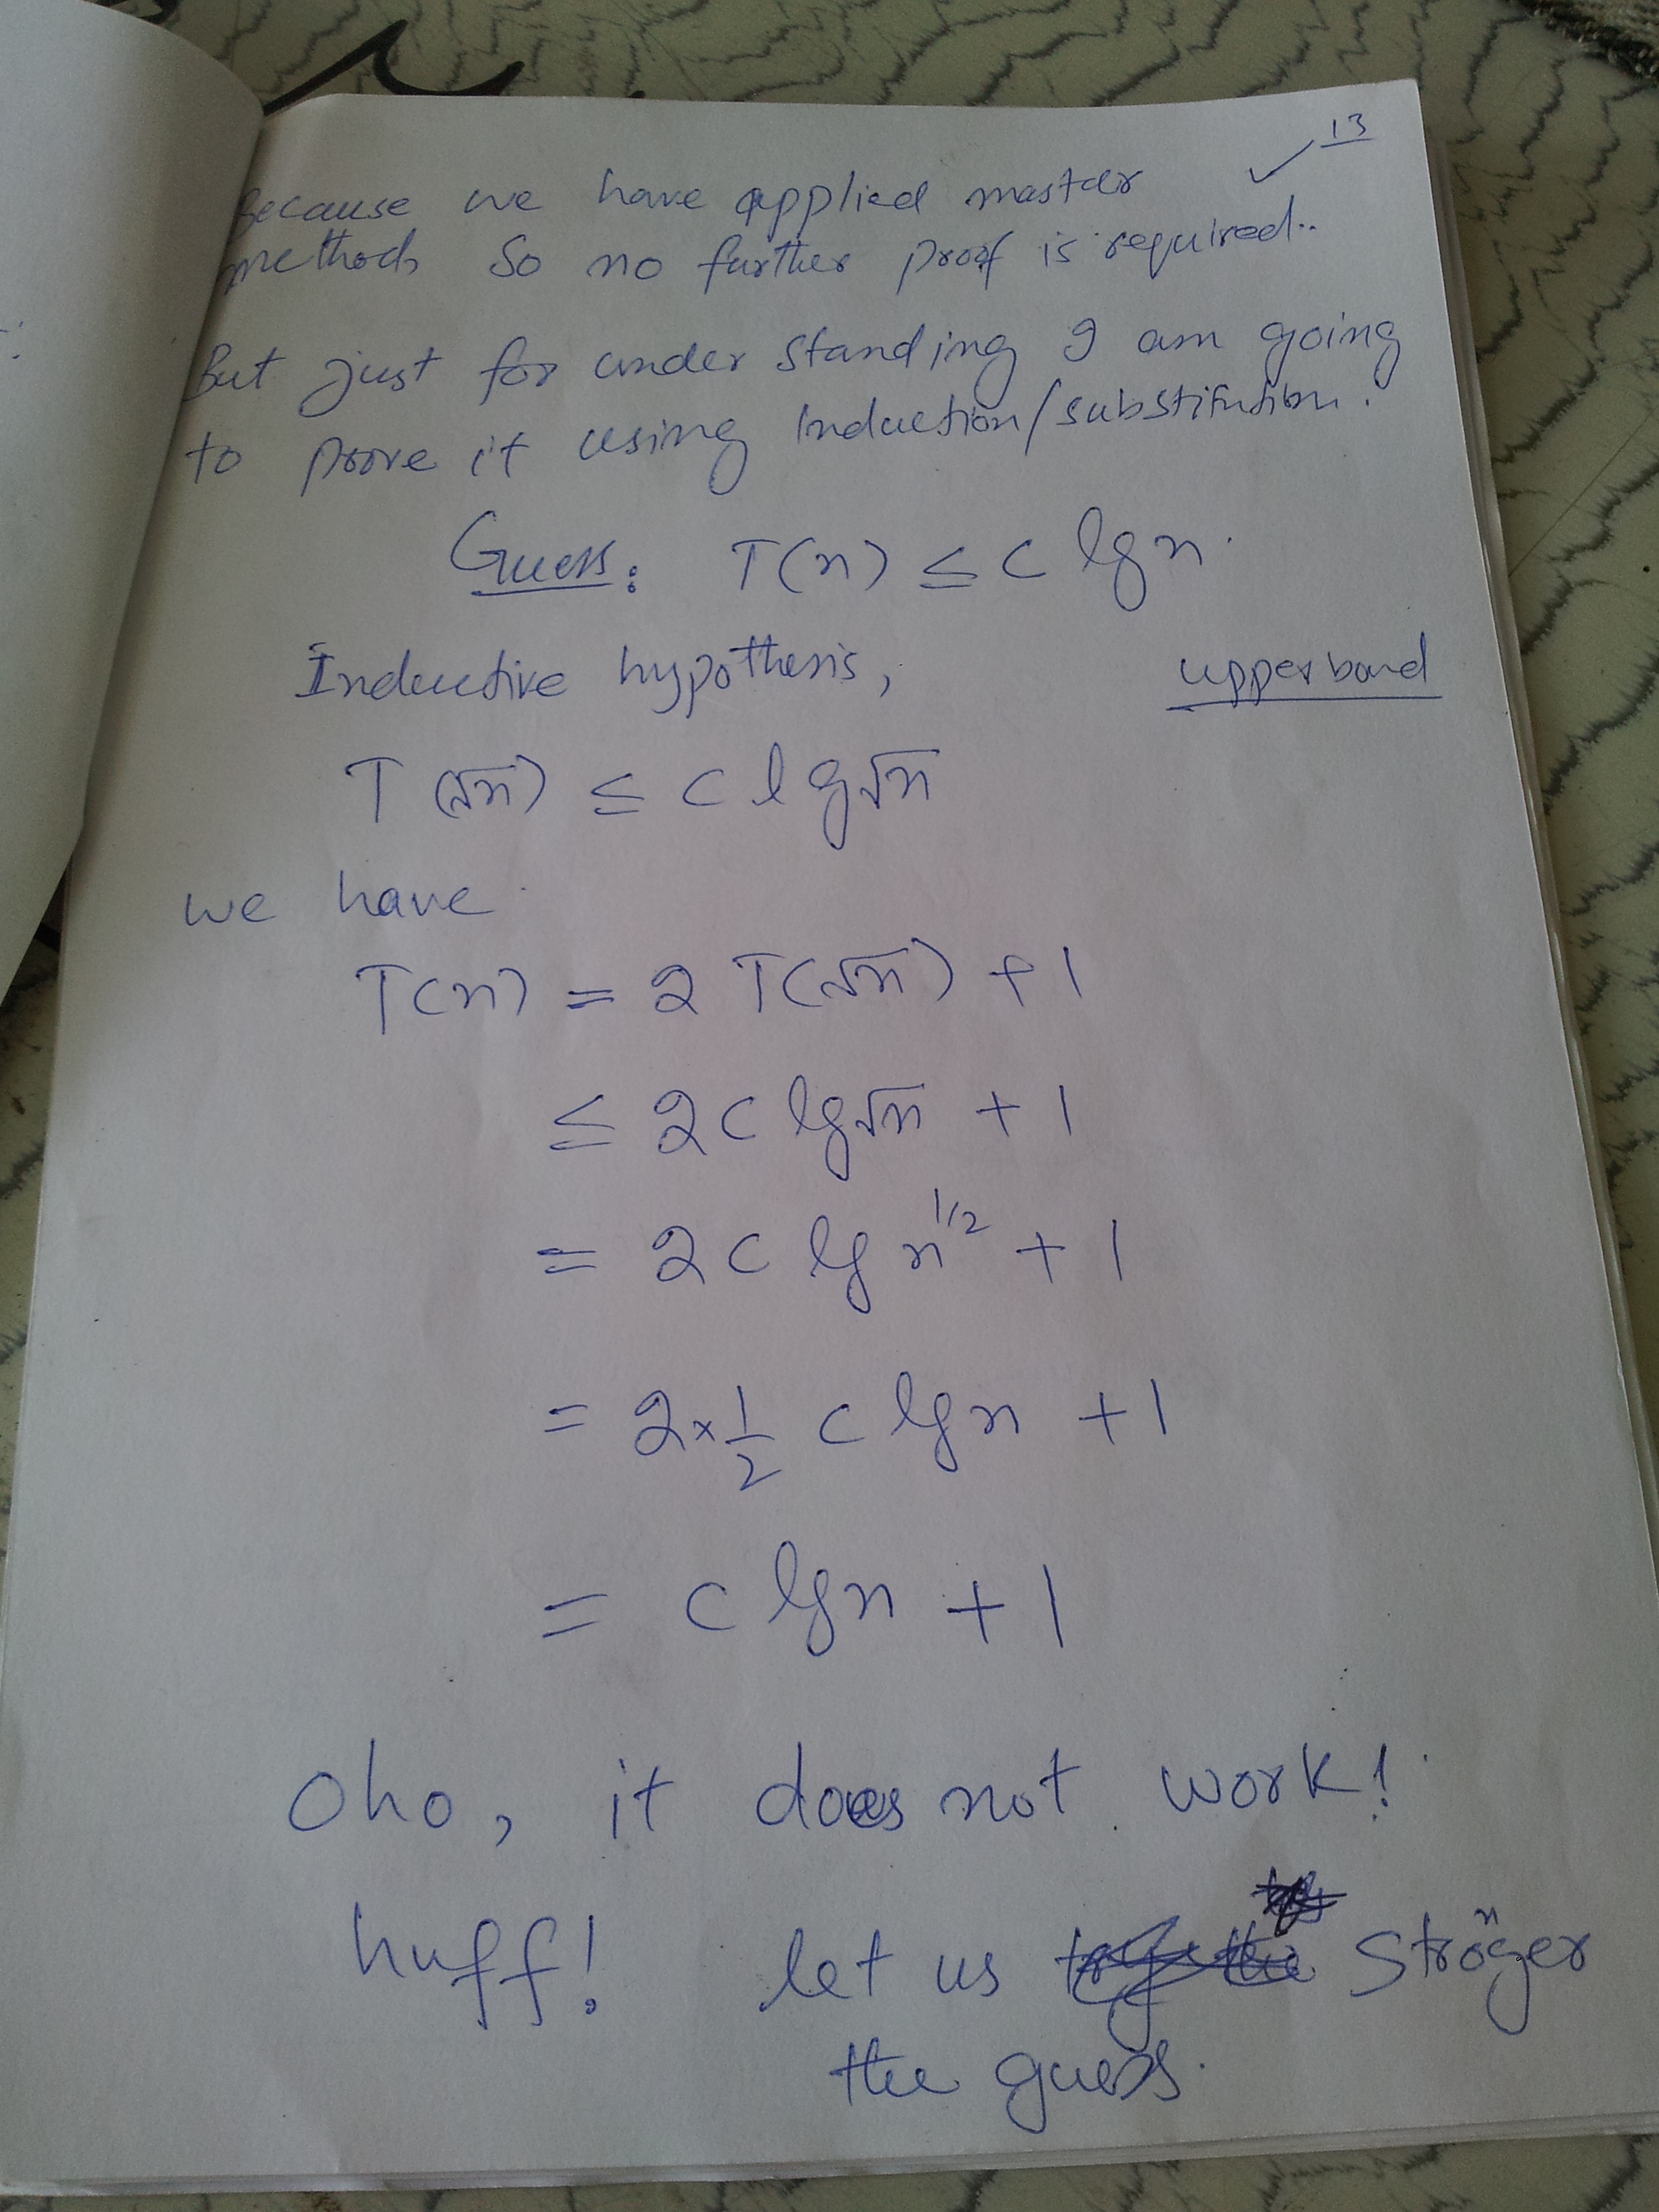 13
because we have applied master
method, so no further proof is required..
but just for under standing I am going
to prove it using induction/substitution.
Guess: T(n) ≤ c lg n.
Inductive hypothesis,
upper bound
T(√n) ≤ c lg √n
we have.
T(n) = 2 T(√n) + 1
≤ 2 c lg √n + 1
= 2 c lg n^1/2 + 1
= 2 × 1/2 c lg n + 1
= c lg n + 1
Oho, it does not work!
huff! let us Stronger
the guess.